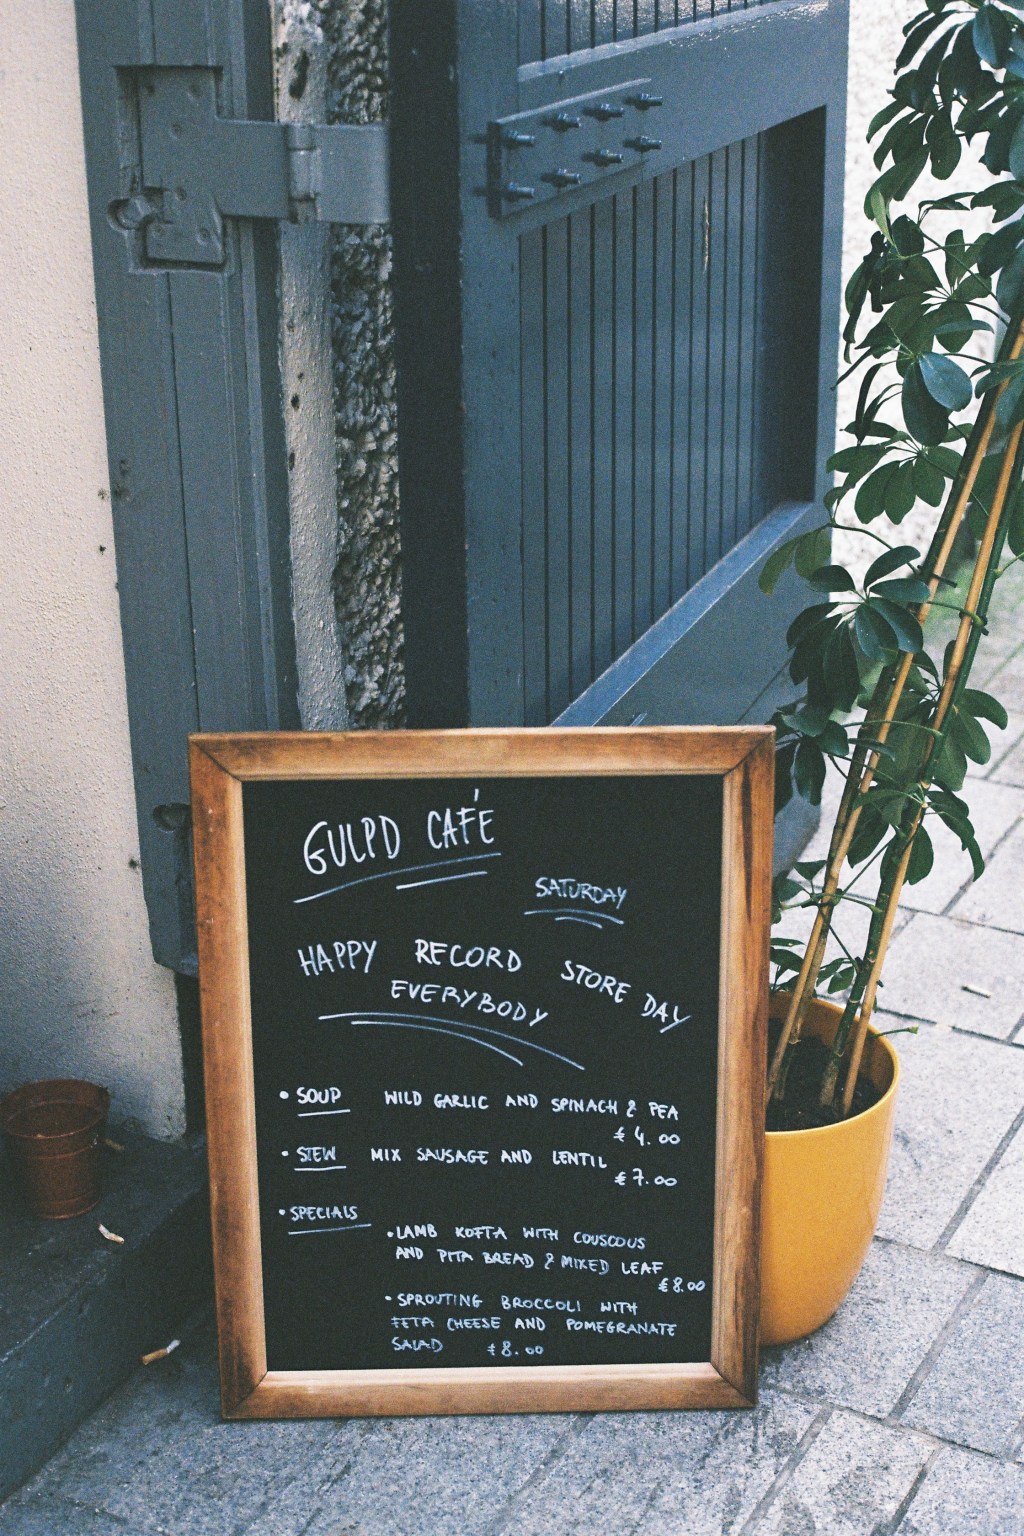 GULPD CAFÉ
SATURDAY
HAPPY RECORD STORE DAY
EVERYBODY
• SOUP WILD GARLIC AND SPINACH & PEA
€4.00
• STEW MIX SAUSAGE AND LENTIL
€7.00
• SPECIALS
• LAMB KOFTA WITH COUSCOUS
AND PITA BREAD & MIXED LEAF
€8.00
• SPROUTING BROCCOLI WITH
FETA CHEESE AND POMEGRANATE
SALAD €8.00